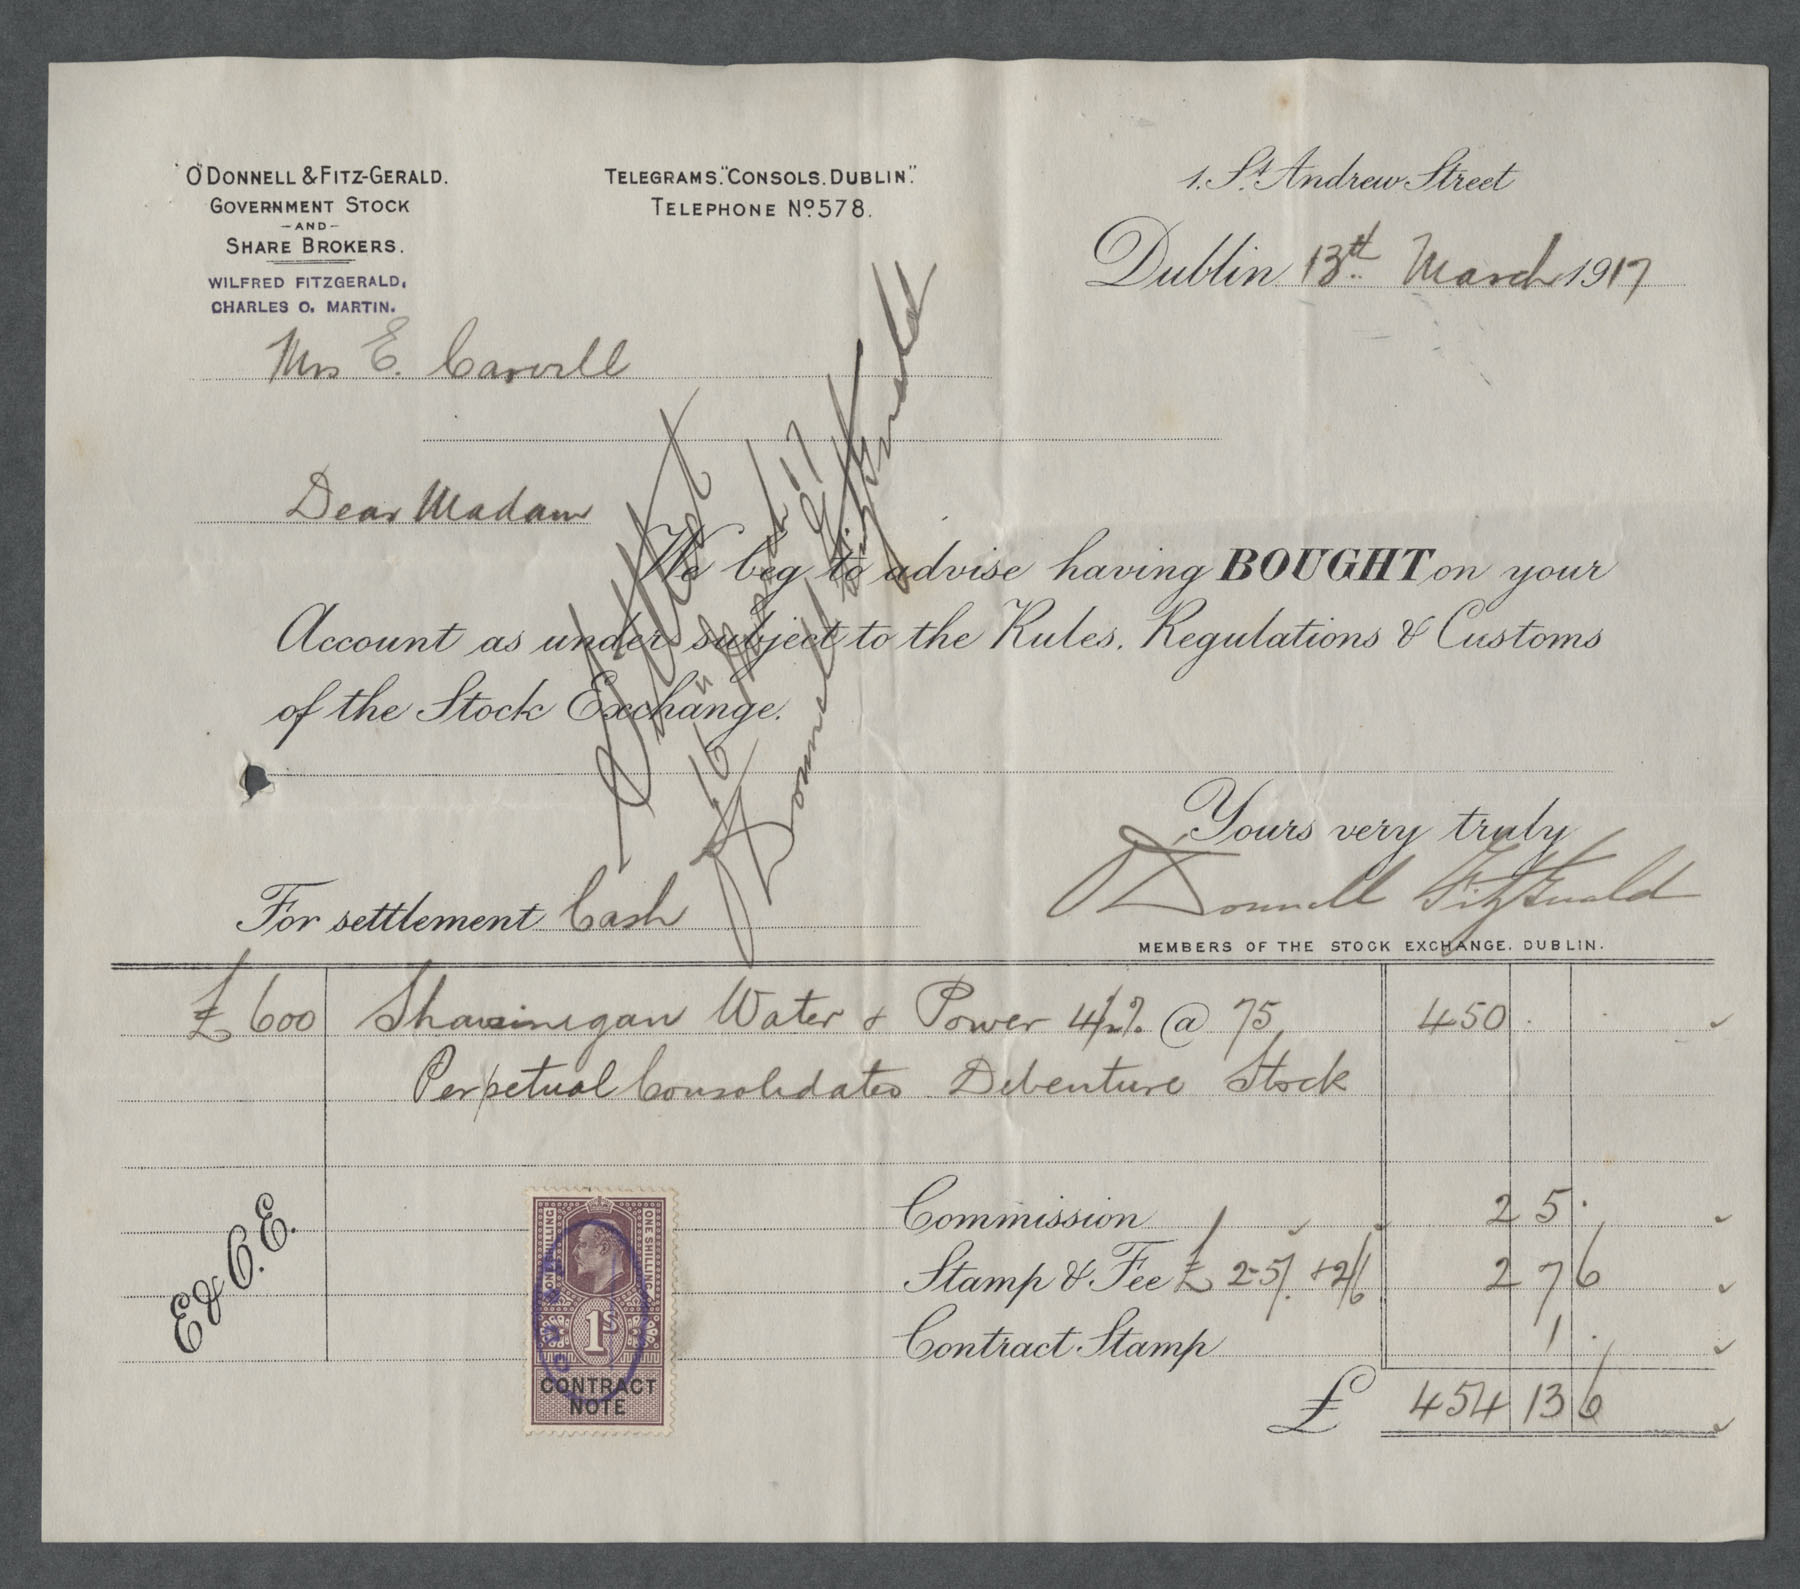 O'DONNELL & FITZ-GERALD.
GOVERNMENT STOCK
-AND-
SHARE BROKERS.
WILFRED FITZGERALD,
CHARLES O. MARTIN.
TELEGRAMS. "CONSOLS. DUBLIN".
TELEPHONE No 578.
1. St Andrew Street
Dublin 13th March 1917
Mrs E. Carvill
Dear Madam
We beg to advise having BOUGHT on your
Account as under subject to the Rules, Regulations & Customs
of the Stock Exchange.
16 17
O'Donnell Fitzgerald
Yours very truly
O'Donnell Fitzgerald
MEMBERS OF THE STOCK EXCHANGE. DUBLIN.
For settlement Cash
£600 Shawinigan Water & Power 4½% @ 75 450 . .
Perpetual Consolidated Debenture Stock
E & O. E.
Commission 2 5 .
Stamp & Fee £2-5/. + 2/6 2 7 6
Contract Stamp 1 .
£ 454 13 6
ONE SHILLING
ONE SHILLING
1S
CONTRACT
NOTE